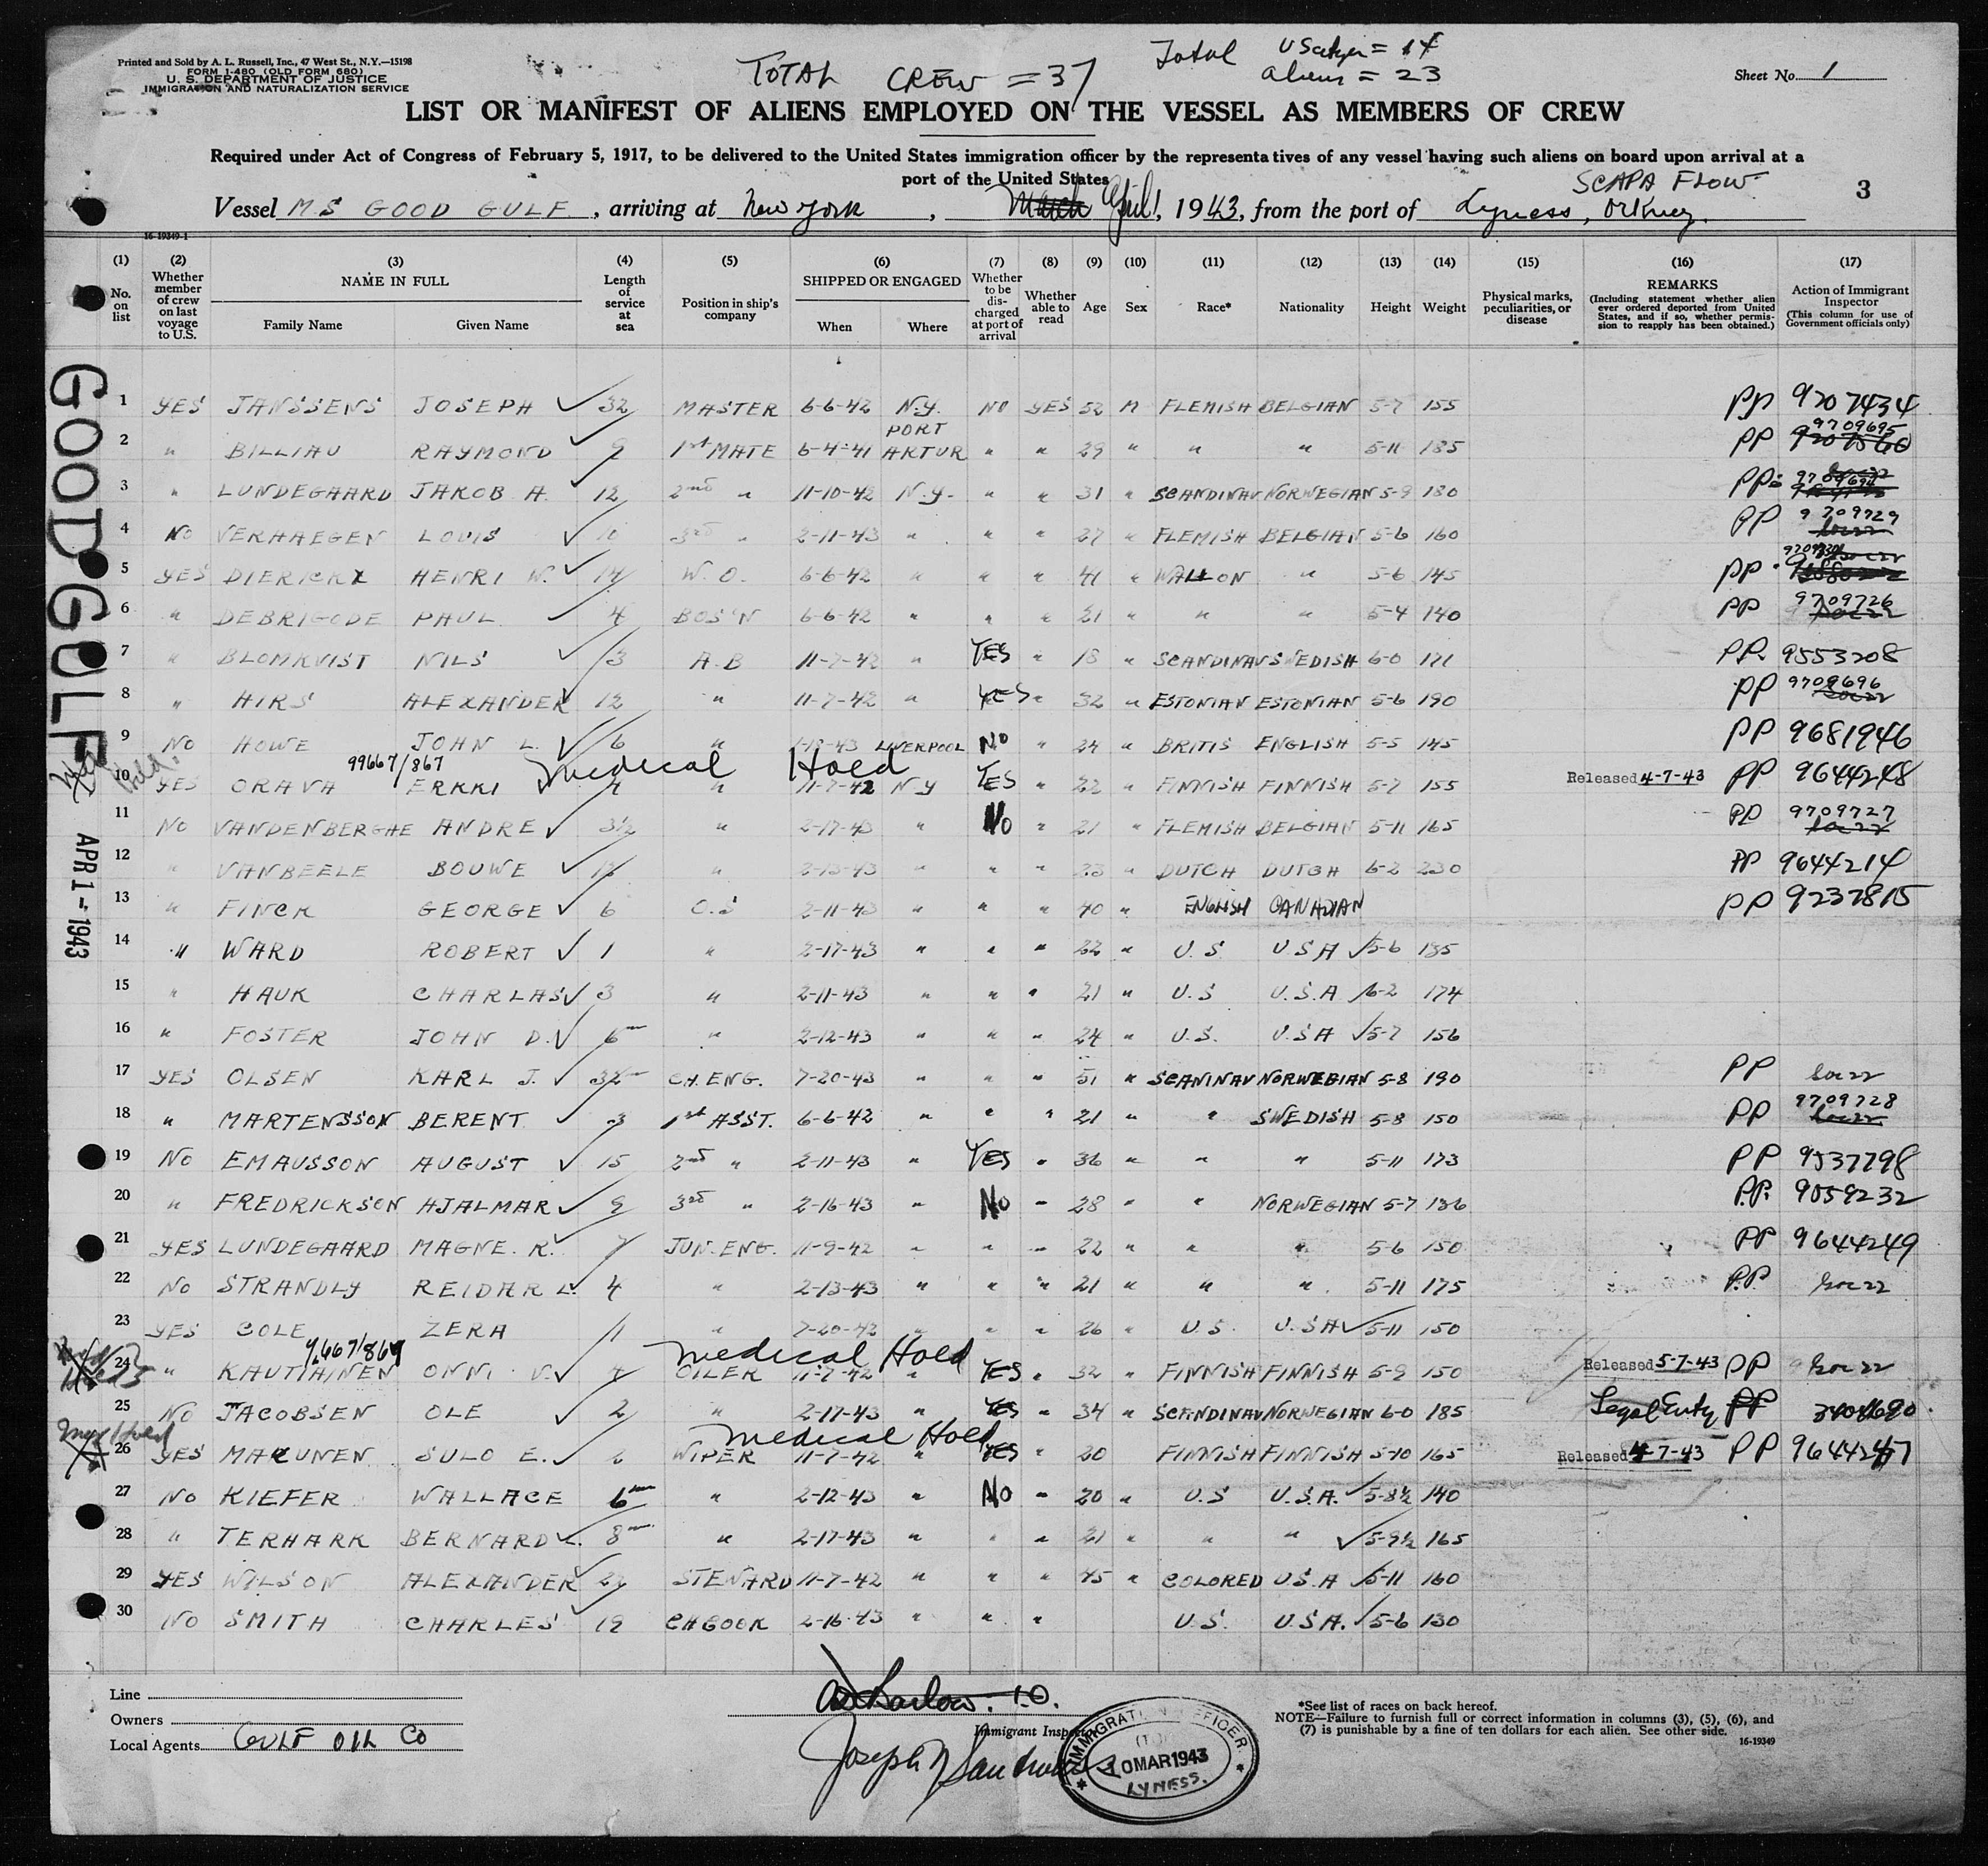 Printed and Sold by A. L. Russell, Inc., 47 West St., N.Y.—15198
FORM I-480 (OLD FORM 680)
U. S. DEPARTMENT OF JUSTICE
IMMIGRATION AND NATURALIZATION SERVICE
TOTAL CREW = 37
Total
aliens = 23
Sheet No. 1
LIST OR MANIFEST OF ALIENS EMPLOYED ON THE VESSEL AS MEMBERS OF CREW
Required under Act of Congress of February 5, 1917, to be delivered to the United States immigration officer by the representatives of any vessel having such aliens on board upon arrival at a
port of the United States
SCAPA FLOW
3
Vessel M.S GOOD GULF, arriving at New York, March April 1, 1943, from the port of Lyness, Orkney.
16-19349-1
(1) No. on list
(2) Whether member of crew on last voyage to U.S.
(3) NAME IN FULL Family Name Given Name
(4) Length of service at sea
(5) Position in ship's company
(6) SHIPPED OR ENGAGED When Where
(7) Whether to be discharged at port of arrival
(8) Whether able to read
(9) Age
(10) Sex
(11) Race*
(12) Nationality
(13) Height
(14) Weight
(15) Physical marks, peculiarities, or disease
(16) REMARKS (Including statement whether alien ever ordered deported from United States, and if so, whether permission to reapply has been obtained.)
(17) Action of Immigrant Inspector (This column for use of Government officials only)
GOOD GULF
APR 1-1943
1 YES JANSSENS JOSEPH ✓ 32 MASTER 6-6-42 N.Y. NO YES 52 M FLEMISH BELGIAN 5-7 155 PP 9707434
2 " BILLIAU RAYMOND ✓ 9 1st MATE 6-4-41 PORT ARTUR " " 29 " " " 5-11 185 PP 9709695
3 " LUNDEGAARD JAKOB A. 12 2nd " 11-10-42 N.Y. " " 31 " SCANDINAV NORWEGIAN 5-9 180 PP
4 NO VERHAEGEN LOUIS ✓ 10 3rd " 2-11-43 " " " 27 " FLEMISH BELGIAN 5-6 160 PP 9709729
5 YES DIERICKX HENRI W. ✓ 14 W.O. 6-6-42 " " " 41 " WALLON " 5-6 145 PP
6 " DEBRIGODE PAUL ✓ 4 BOS'N 6-6-42 " " " 21 " " " 5-4 140 PP 9709726
7 " BLOMKVIST NILS ✓ 3 A.B 11-7-42 " YES " 18 " SCANDINAV SWEDISH 6-0 171 PP. 9553208
8 " HIRS ALEXANDER ✓ 12 " 11-7-42 " YES " 32 " ESTONIAN ESTONIAN 5-6 190 PP 9709696
9 NO HOWE JOHN L. ✓ 6 " 1-12-43 LIVERPOOL NO " 24 " BRITIS ENGLISH 5-5 145 PP 9681946
99667/867 Medical Hold
10 YES ORAVA ERKKI ✓ 4 " 11-7-42 N Y YES " 22 " FINNISH FINNISH 5-7 155 Released 4-7-43 PP 9644248
11 NO VANDENBERGHE ANDRE ✓ 3½ " 2-17-43 " NO " 21 " FLEMISH BELGIAN 5-11 165 PP 9709727
12 " VANBEELE BOUWE ✓ " 2-13-43 " " " 23 " DUTCH DUTCH 6-2 230 PP 9644214
13 " FINCK GEORGE ✓ 6 O.S 2-11-43 " " " 40 " ENGLISH CANADIAN PP 9237815
14 " WARD ROBERT ✓ 1 " 2-17-43 " " " 22 " U.S. U.S A ✓ 5-6 135
15 " HAUK CHARLAS ✓ 3 " 2-11-43 " " " 21 " U.S U.S.A. ✓ 6-2 174
16 " FOSTER JOHN D. ✓ 6 " 2-12-43 " " " 24 " U.S. U.S A ✓ 5-7 156
17 YES OLSEN KARL J. ✓ 32 CH. ENG. 7-20-43 " " " 51 " SCANINAV NORWEGIAN 5-8 190 PP
18 " MARTENSSON BERENT ✓ 3 1st ASST. 6-6-42 " " " 21 " " SWEDISH 5-8 150 PP 9709728
19 NO EMAUSSON AUGUST ✓ 15 2nd " 2-11-43 " YES " 36 " " " 5-11 173 PP 9537798
20 " FREDRICKSON HJALMAR ✓ 9 3rd " 2-16-43 " NO " 28 " " NORWEGIAN 5-7 136 P.P. 9059232
21 YES LUNDEGAARD MAGNE. R. ✓ 7 JUN. ENG. 11-9-42 " " " 22 " " " 5-6 150 PP 9644249
22 NO STRANDLY REIDAR L. ✓ 4 " 2-13-43 " " " 21 " " " 5-11 175 P.P.
23 YES COLE ZERA 1 " 7-20-42 " " " 26 " U.S. U.S A ✓ 5-11 150
Medical Hold
24 " KAUTIAINEN ONNI V. ✓ 4 OILER 11-7-42 " YES " 32 " FINNISH FINNISH 5-9 150 Released 5-7-43 PP
25 NO JACOBSEN OLE ✓ 2 " 2-17-43 " YES " 34 " SCANDINAV NORWEGIAN 6-0 185 Legal Entry PP
Medical Hold
26 YES MAKUNEN SULO E. ✓ 2 WIPER 11-7-42 " YES " 20 FINNISH FINNISH 5-10 165 Released 4-7-43 PP 9644247
27 NO KIEFER WALLACE 6 " 2-12-43 " NO " 20 " U.S U.S.A. ✓ 5-8½ 140
28 " TERHARK BERNARD L. ✓ 8 " 2-17-43 " " " 21 " " " ✓ 5-9½ 165
29 YES WILSON ALEXANDER ✓ STEWARD 11-7-42 " " " 45 " COLORED U.S.A ✓ 5-11 160
30 NO SMITH CHARLES ✓ 19 CH COOK 2-16-43 " " " U.S. U.S.A. ✓ 5-6 130
Line
Owners
Local Agents GULF OIL Co
Barlow. I.O.
Immigrant Inspector
Joseph
IMMIGRATION OFFICER
MAR 1943
LYNESS.
*See list of races on back hereof.
NOTE—Failure to furnish full or correct information in columns (3), (5), (6), and
(7) is punishable by a fine of ten dollars for each alien. See other side.
16-19349